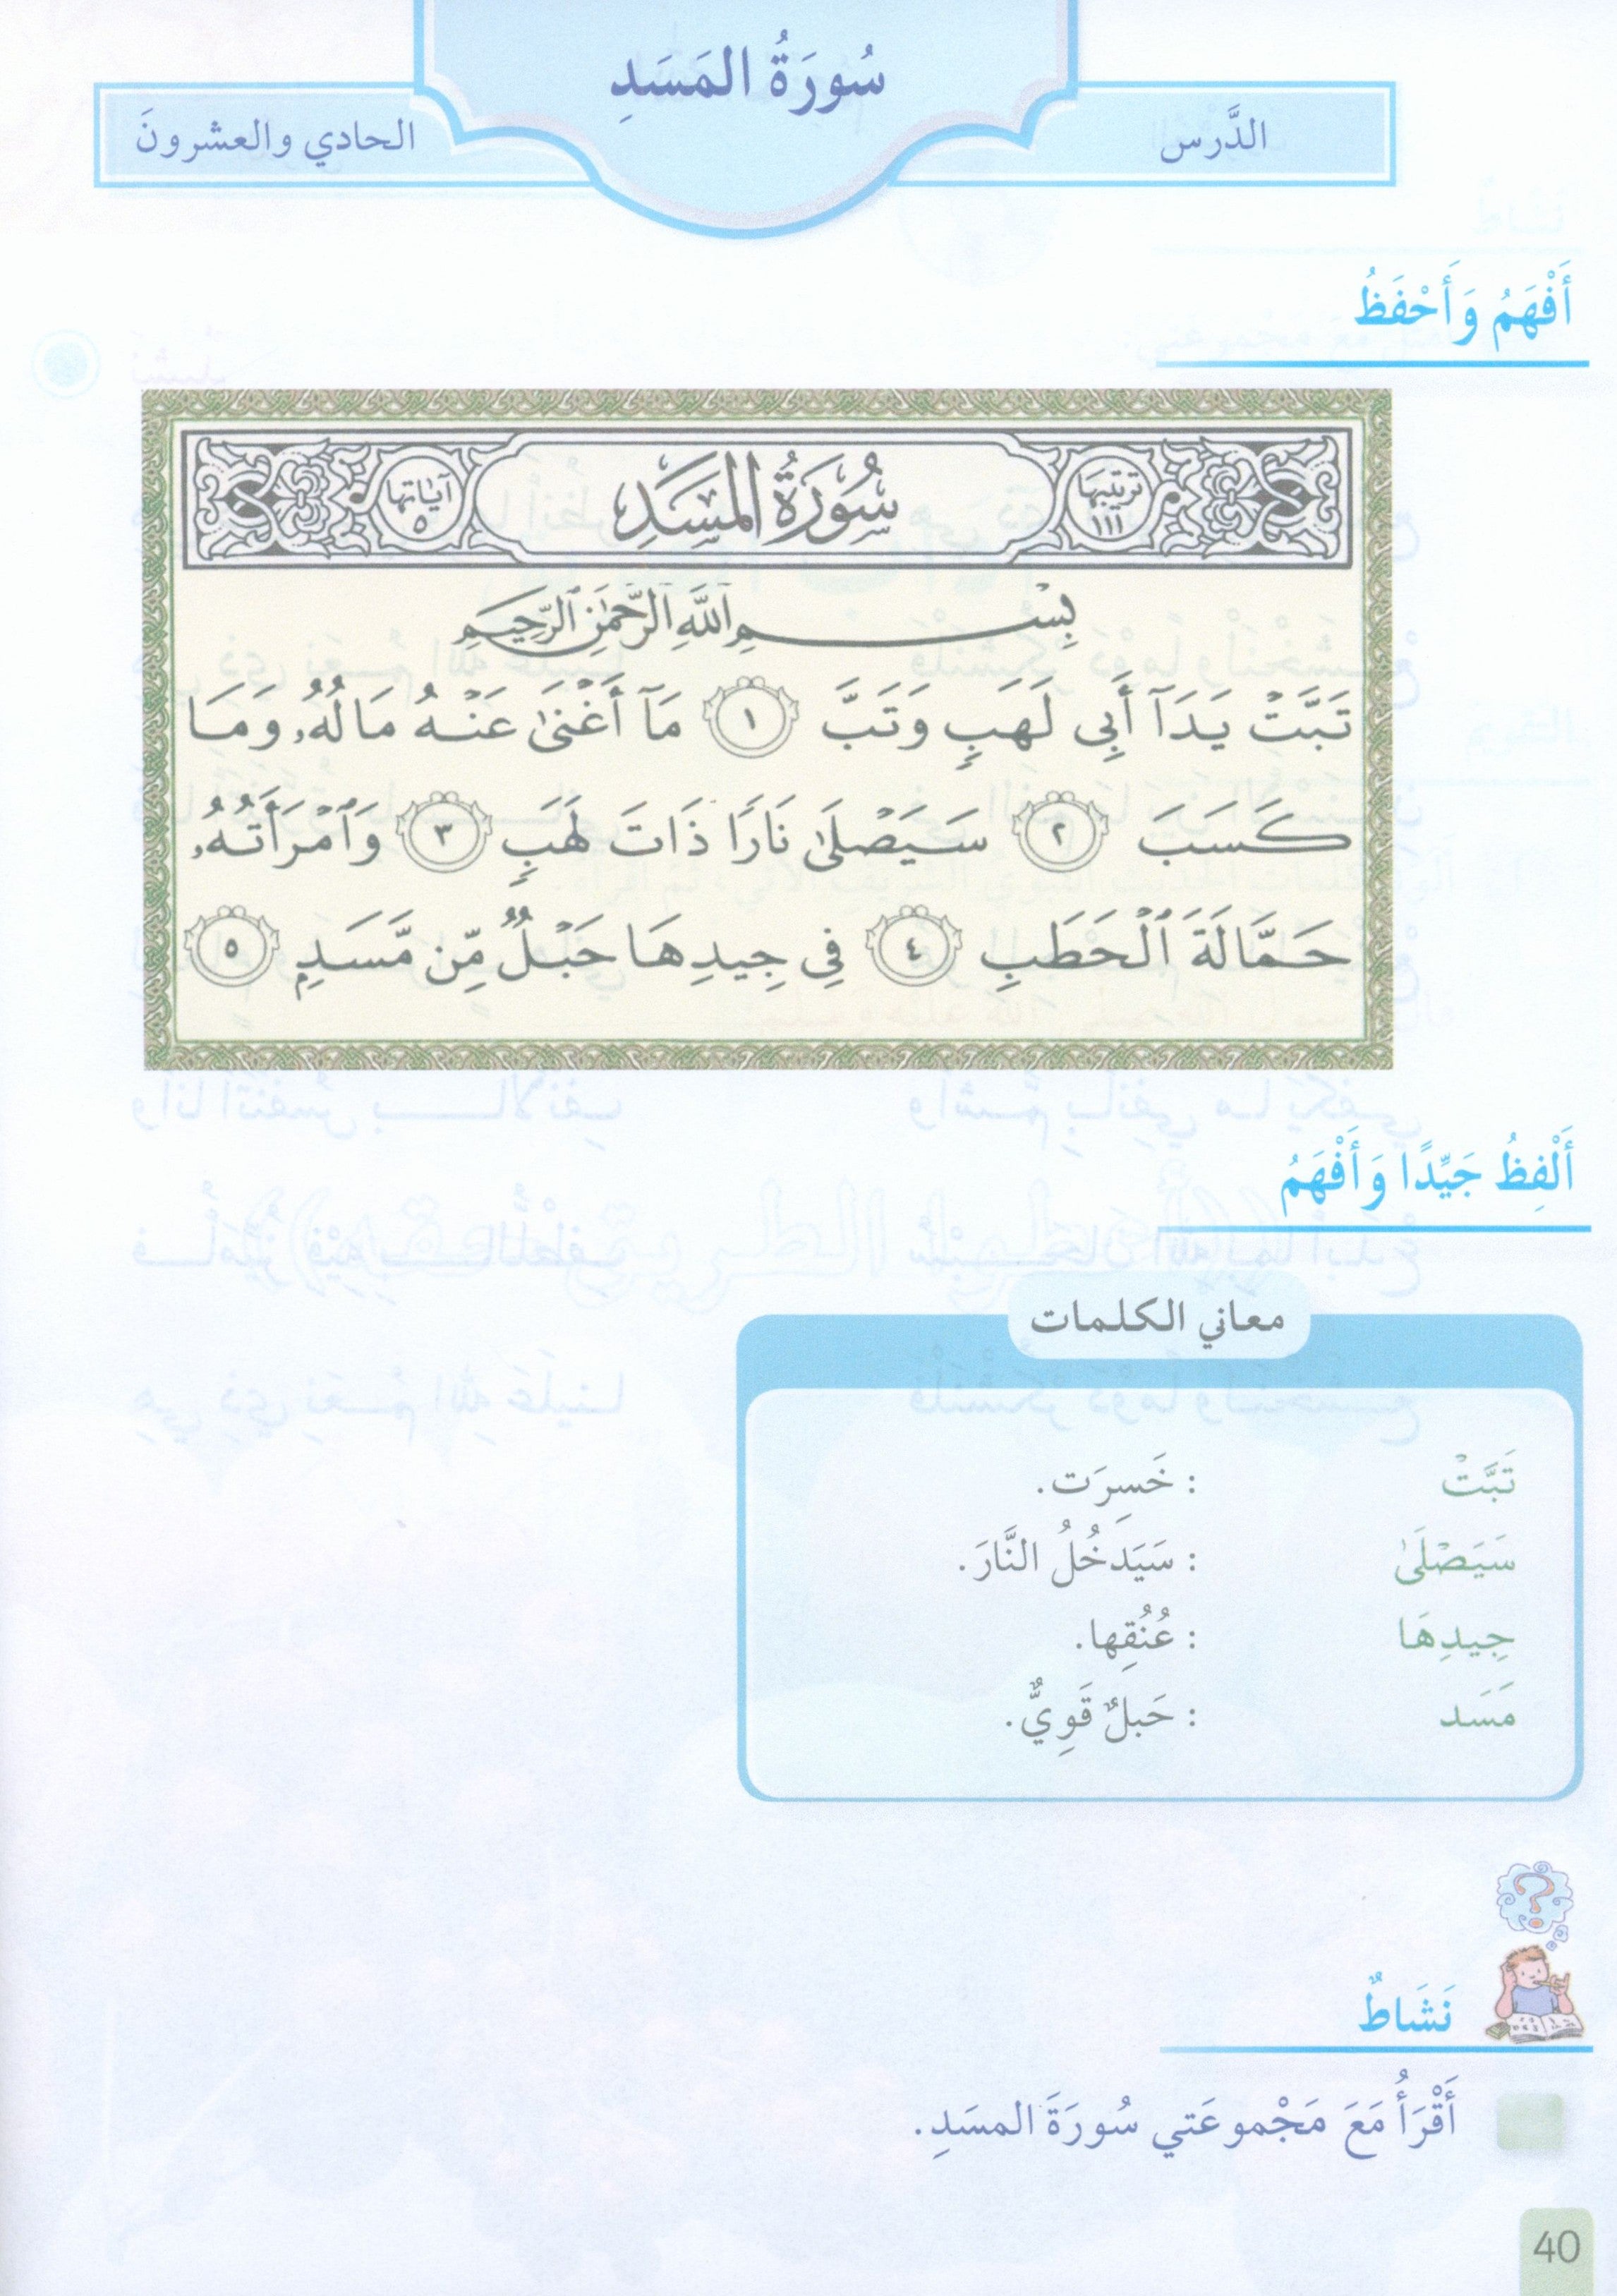 سُورَةُ المَسَدِ
الدَّرس
الحادي والعشرونَ
أَفْهَمُ وَأَحْفَظُ
ترتيبها ١١١
سُورَةُ المَسَدِ
آياتها ٥
بِسْمِ ٱللَّهِ ٱلرَّحْمَٰنِ ٱلرَّحِيمِ
تَبَّتْ يَدَآ أَبِى لَهَبٍ وَتَبَّ ١ مَآ أَغْنَىٰ عَنْهُ مَالُهُۥ وَمَا
كَسَبَ ٢ سَيَصْلَىٰ نَارًا ذَاتَ لَهَبٍ ٣ وَٱمْرَأَتُهُۥ
حَمَّالَةَ ٱلْحَطَبِ ٤ فِى جِيدِهَا حَبْلٌ مِّن مَّسَدٍۭ ٥
أَلْفِظُ جَيِّدًا وَأَفْهَمُ
معاني الكلمات
تَبَّتْ : خَسِرَت.
سَيَصْلَىٰ : سَيَدخُلُ النَّارَ.
جِيدِهَا : عُنُقِها.
مَسَد : حَبلٌ قَوِيٌّ.
نَشَاطٌ
أَقْرَأُ مَعَ مَجْموعَتي سُورَةَ المسَدِ.
40